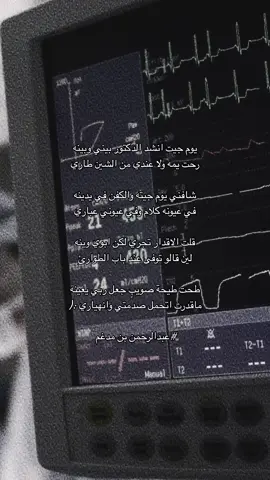 يوم جيت انشد الدكتور بيني وبينه
رحت يمه ولا عندي من الشين طاري
شافني يوم جيته والكفن في يدينه
في عيونه كلام وفي عيوني عباري
قلت الاقدار تجري لكن ابوي وينه
لين قالو توفى عند باب الطواري
طحت طيحة صويب جعل ربي يعينه
ماقدرت اتحمل صدمتي وانهياري
# عبدالرحمن بن مدغم
21
24
4
T1+T2
T1 ---
T2 ---
T2-T1
Manual